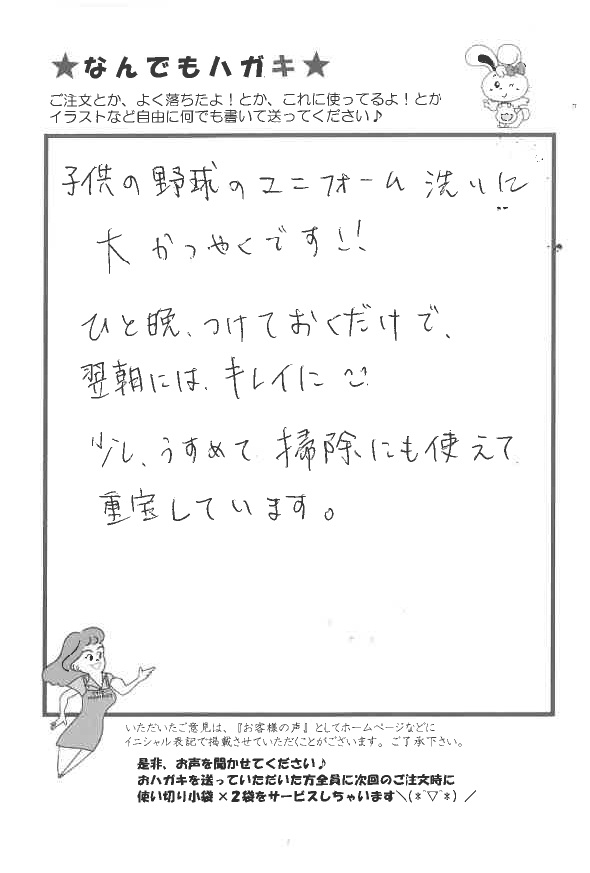 ★なんでもハガキ★
ご注文とか、よく落ちたよ！とか、これに使ってるよ！とか
イラストなど自由に何でも書いて送ってください♪
子供の野球のユニフォーム洗いに
大かつやくです!!
ひと晩、つけておくだけで、
翌朝には、キレイに
少し、うすめて掃除にも使えて
重宝しています。
いただいたご意見は、『お客様の声』としてホームページなどに
イニシャル表記で掲載させていただくことがございます。ご了承下さい。
是非、お声を聞かせてください♪
おハガキを送っていただいた方全員に次回のご注文時に
使い切り小袋×2袋をサービスしちゃいます＼(*ˆ▽ˆ*)／